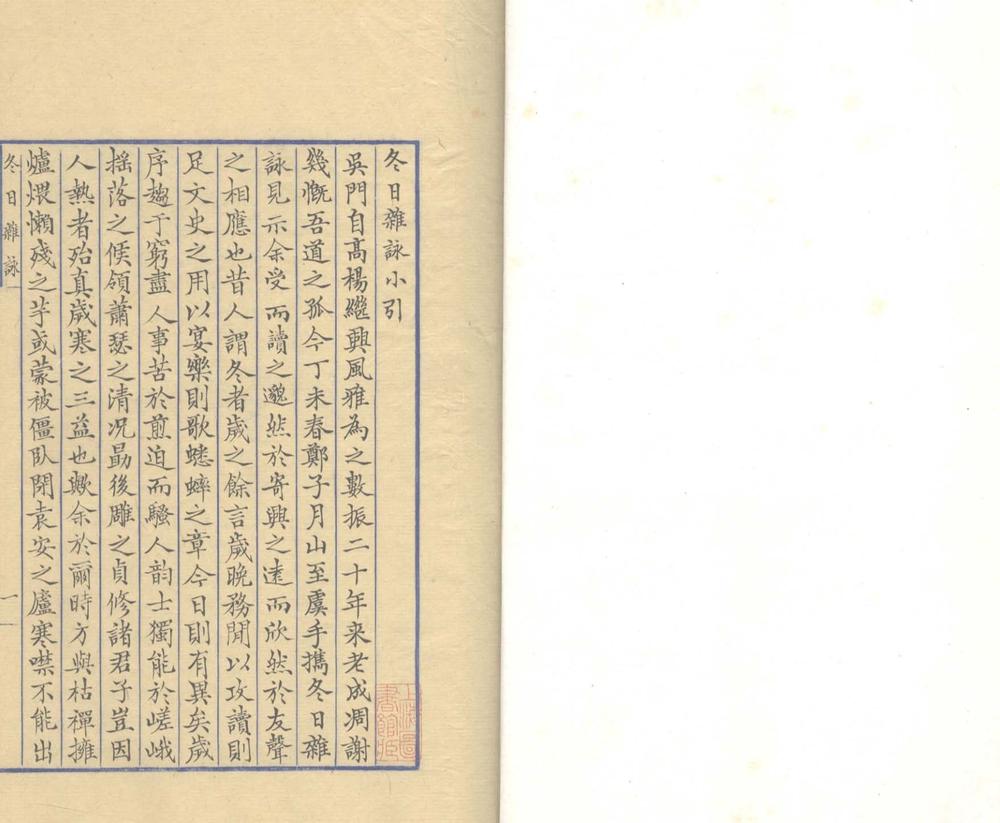 冬日雜詠小引
吳門自高楊繼興風雅為之數振二十年来老成凋謝
幾慨吾道之孤今丁未春鄭子月山至虞手攜冬日雜
詠見示余受而讀之邈然於寄興之遠而欣然於友聲
之相應也昔人謂冬者歲之餘言歲晚務閒以攻讀則
足文史之用以宴樂則歌蟋蟀之章今日則有異矣歲
序趨于窮盡人事苦於煎迫而騷人韵士獨能於嵯峨
揺落之候領蕭瑟之清况勗後雕之貞修諸君子豈因
人熱者殆真歲寒之三益也歟余於爾時方與枯禪擁
爐煨懶殘之芋或蒙被僵臥閉袁安之廬寒噤不能出
冬日雜詠
一
上海圖
書館藏